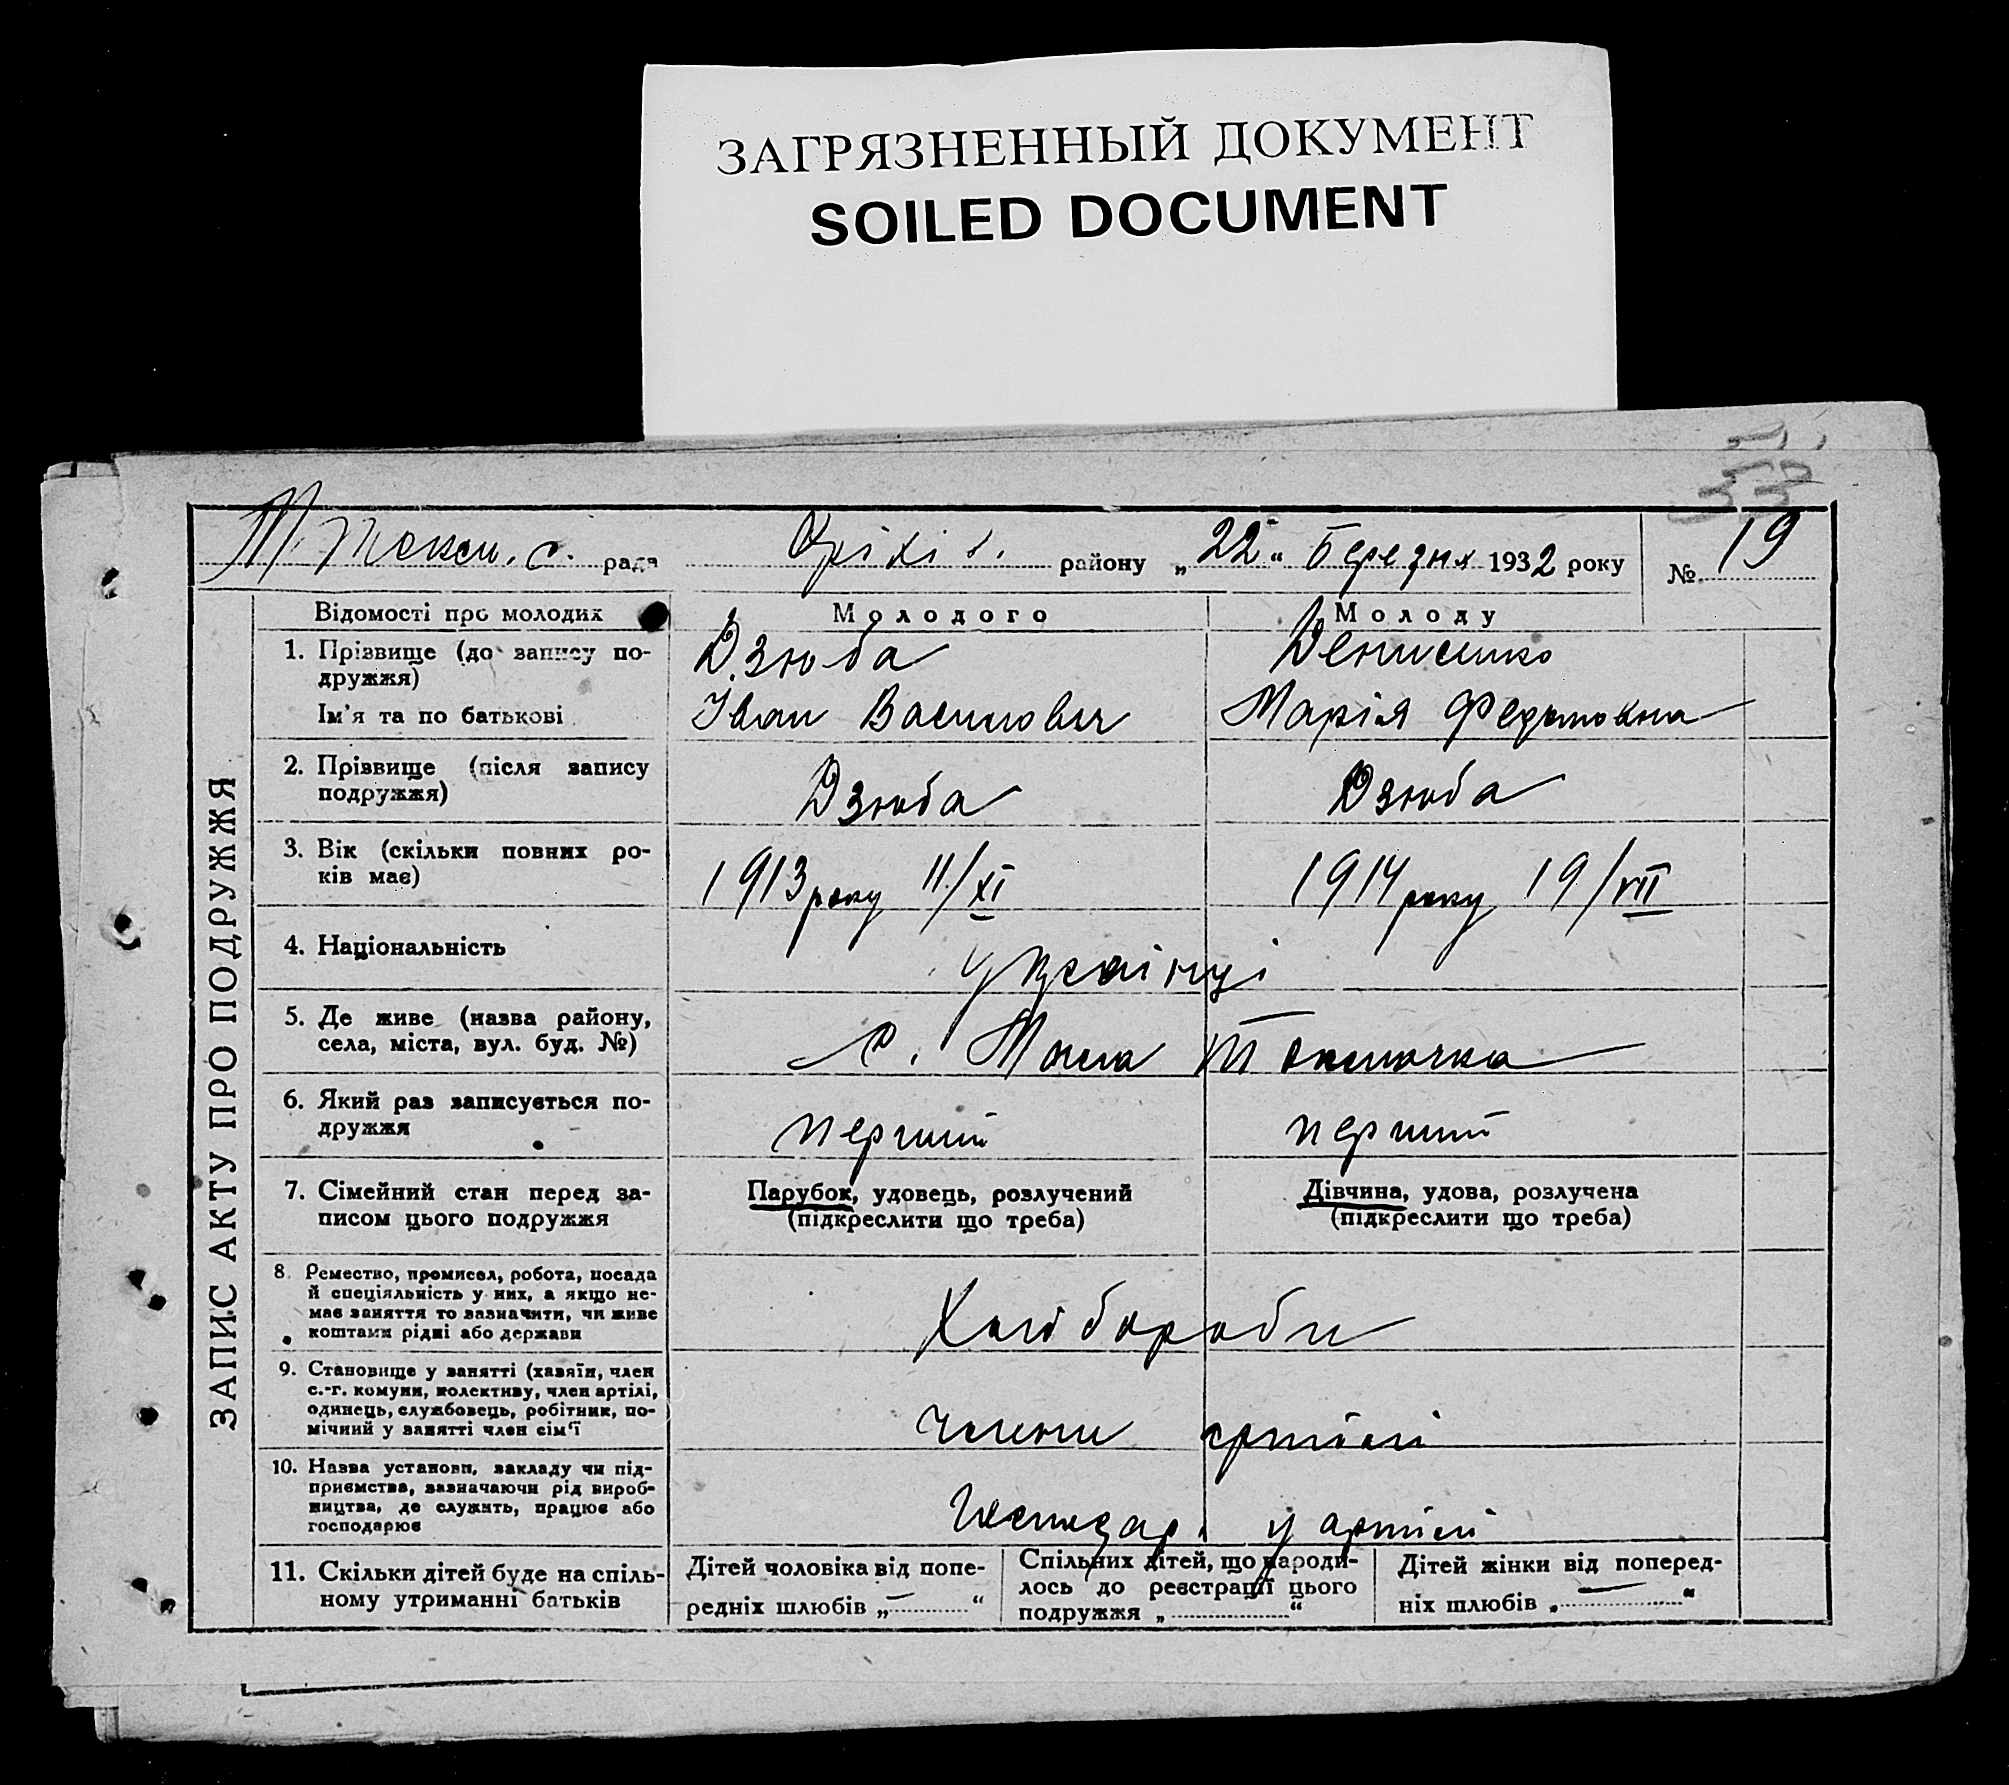 ЗАГРЯЗНЕННЫЙ ДОКУМЕНТ
SOILED DOCUMENT
М. Токм. с. рада Оріхів. району „22“ Березня 1932 року № 19
ЗАПИС АКТУ ПРО ПОДРУЖЖЯ
Відомості про молодих Молодого Молоду
1. Прізвище (до запису по-
дружжя) Дзюба Денисенко
Ім'я та по батькові Іван Василович Марія Федотовна
2. Прізвище (після запису
подружжя) Дзюба Дзюба
3. Вік (скільки повних ро-
ків має) 1913 року 11/XI 1914 року 19/VII
4. Національність Українці
5. Де живе (назва району,
села, міста, вул. буд. №) с. Мала Токмачка
6. Який раз записується по-
дружжя перший перший
7. Сімейний стан перед за-
писом цього подружжя
Парубок, удовець, розлучений
(підкреслити що треба)
Дівчина, удова, розлучена
(підкреслити що треба)
8. Ремество, промисел, робота, посада
й спеціяльність у них, а якщо не-
має заняття то зазначити, чи живе
коштами рідні або держави
Хлібороби
9. Становище у занятті (хазяїн, член
с.-г. комуни, колективу, член артілі,
одинець, службовець, робітник, по-
мічний у занятті член сім'ї
члени артілі
10. Назва установи, закладу чи під-
приємства, зазначаючи рід вироб-
ництва, де служить, працює або
господарює
у артілі
11. Скільки дітей буде на спіль-
ному утриманні батьків
Дітей чоловіка від попе-
редніх шлюбів „—“
Спільних дітей, що народи-
лось до реєстрації цього
подружжя „ “
Дітей жінки від поперед-
ніх шлюбів „—“